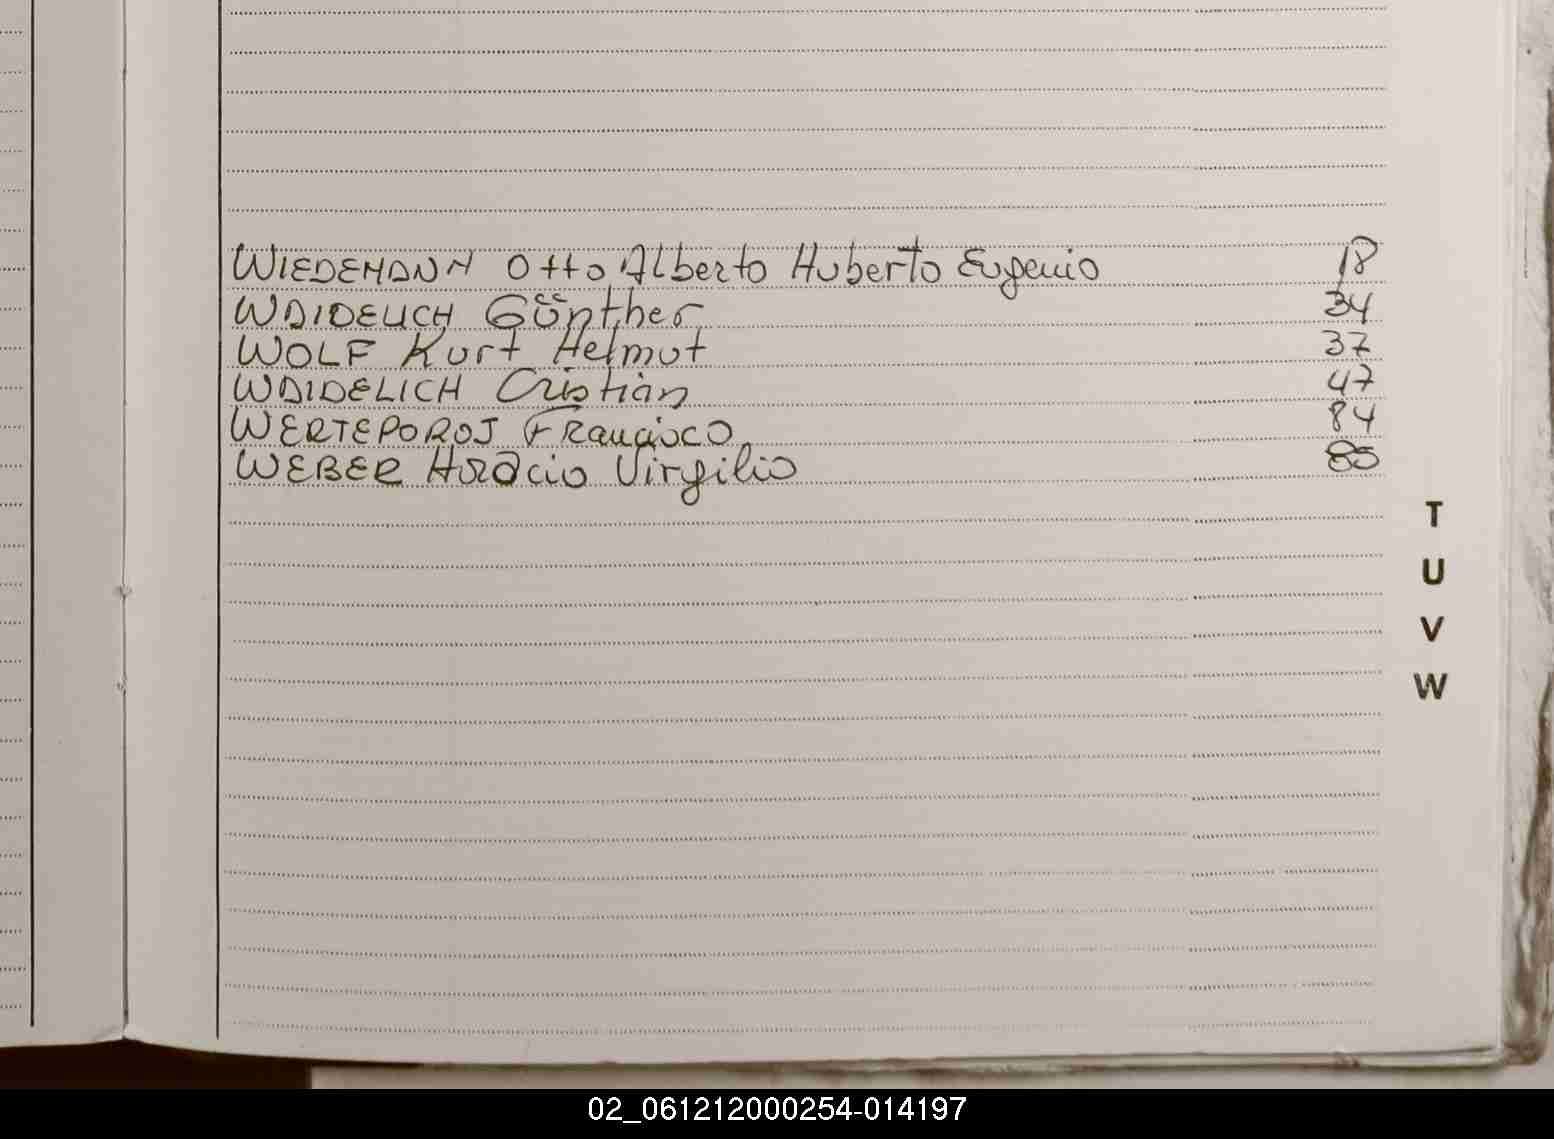 WIEDEMANN Otto Alberto Huberto Eugenio 18
WAIDELICH Günther 34
WOLF Kurt Helmut 37
WAIDELICH Cristian 47
WERTEPOROJ Francisco 84
WEBER Horacio Virgilio 85
T
U
V
W
02_061212000254-014197